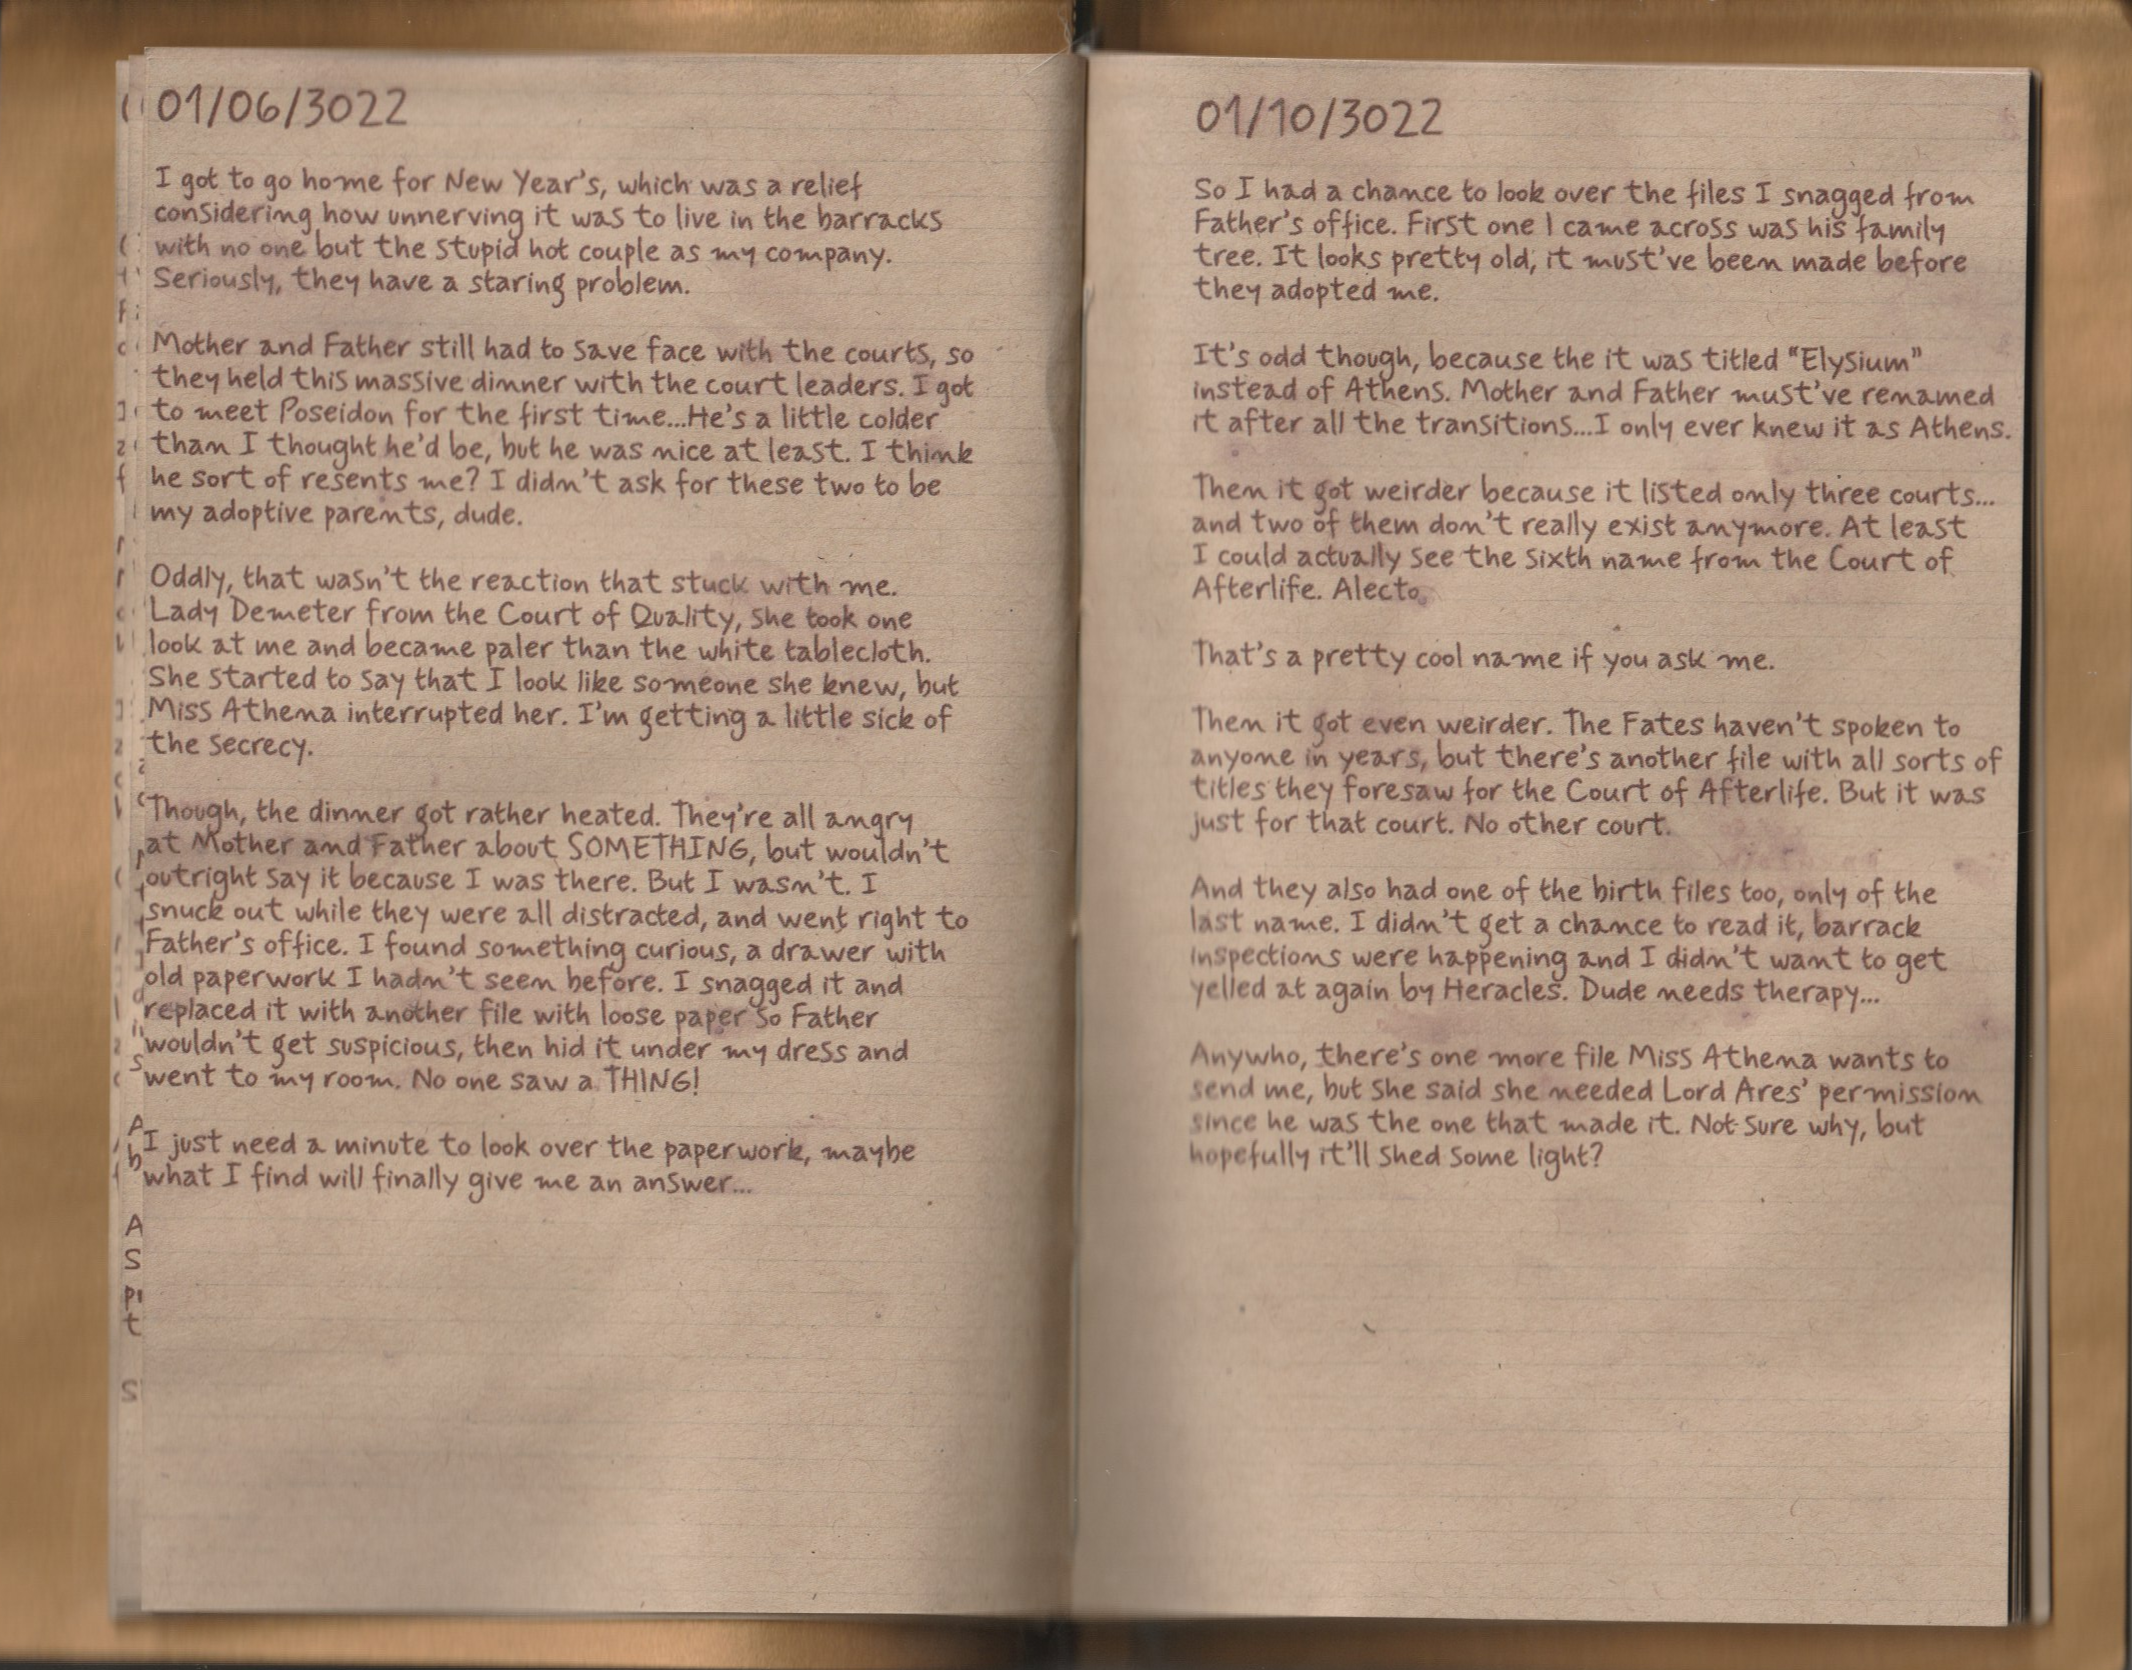 01/06/3022
I got to go home for New Year's, which was a relief
considering how unnerving it was to live in the barracks
with no one but the stupid hot couple as my company.
Seriously, they have a staring problem.
Mother and Father still had to save face with the courts, so
they held this massive dinner with the court leaders. I got
to meet Poseidon for the first time...He's a little colder
than I thought he'd be, but he was nice at least. I think
he sort of resents me? I didn't ask for these two to be
my adoptive parents, dude.
Oddly, that wasn't the reaction that stuck with me.
Lady Demeter from the Court of Quality, she took one
look at me and became paler than the white tablecloth.
She started to say that I look like someone she knew, but
Miss Athena interrupted her. I'm getting a little sick of
the secrecy.
Though, the dinner got rather heated. They're all angry
at Mother and Father about SOMETHING, but wouldn't
outright say it because I was there. But I wasn't. I
snuck out while they were all distracted, and went right to
Father's office. I found something curious, a drawer with
old paperwork I hadn't seen before. I snagged it and
replaced it with another file with loose paper so Father
wouldn't get suspicious, then hid it under my dress and
went to my room. No one saw a THING!
I just need a minute to look over the paperwork, maybe
what I find will finally give me an answer...
01/10/3022
So I had a chance to look over the files I snagged from
Father's office. First one I came across was his family
tree. It looks pretty old, it must've been made before
they adopted me.
It's odd though, because the it was titled "Elysium"
instead of Athens. Mother and Father must've renamed
it after all the transitions...I only ever knew it as Athens.
Then it got weirder because it listed only three courts...
and two of them don't really exist anymore. At least
I could actually see the sixth name from the Court of
Afterlife. Alecto.
That's a pretty cool name if you ask me.
Then it got even weirder. The Fates haven't spoken to
anyone in years, but there's another file with all sorts of
titles they foresaw for the Court of Afterlife. But it was
just for that court. No other court.
And they also had one of the birth files too, only of the
last name. I didn't get a chance to read it, barrack
inspections were happening and I didn't want to get
yelled at again by Heracles. Dude needs therapy...
Anywho, there's one more file Miss Athena wants to
send me, but she said she needed Lord Ares' permission
since he was the one that made it. Not sure why, but
hopefully it'll shed some light?